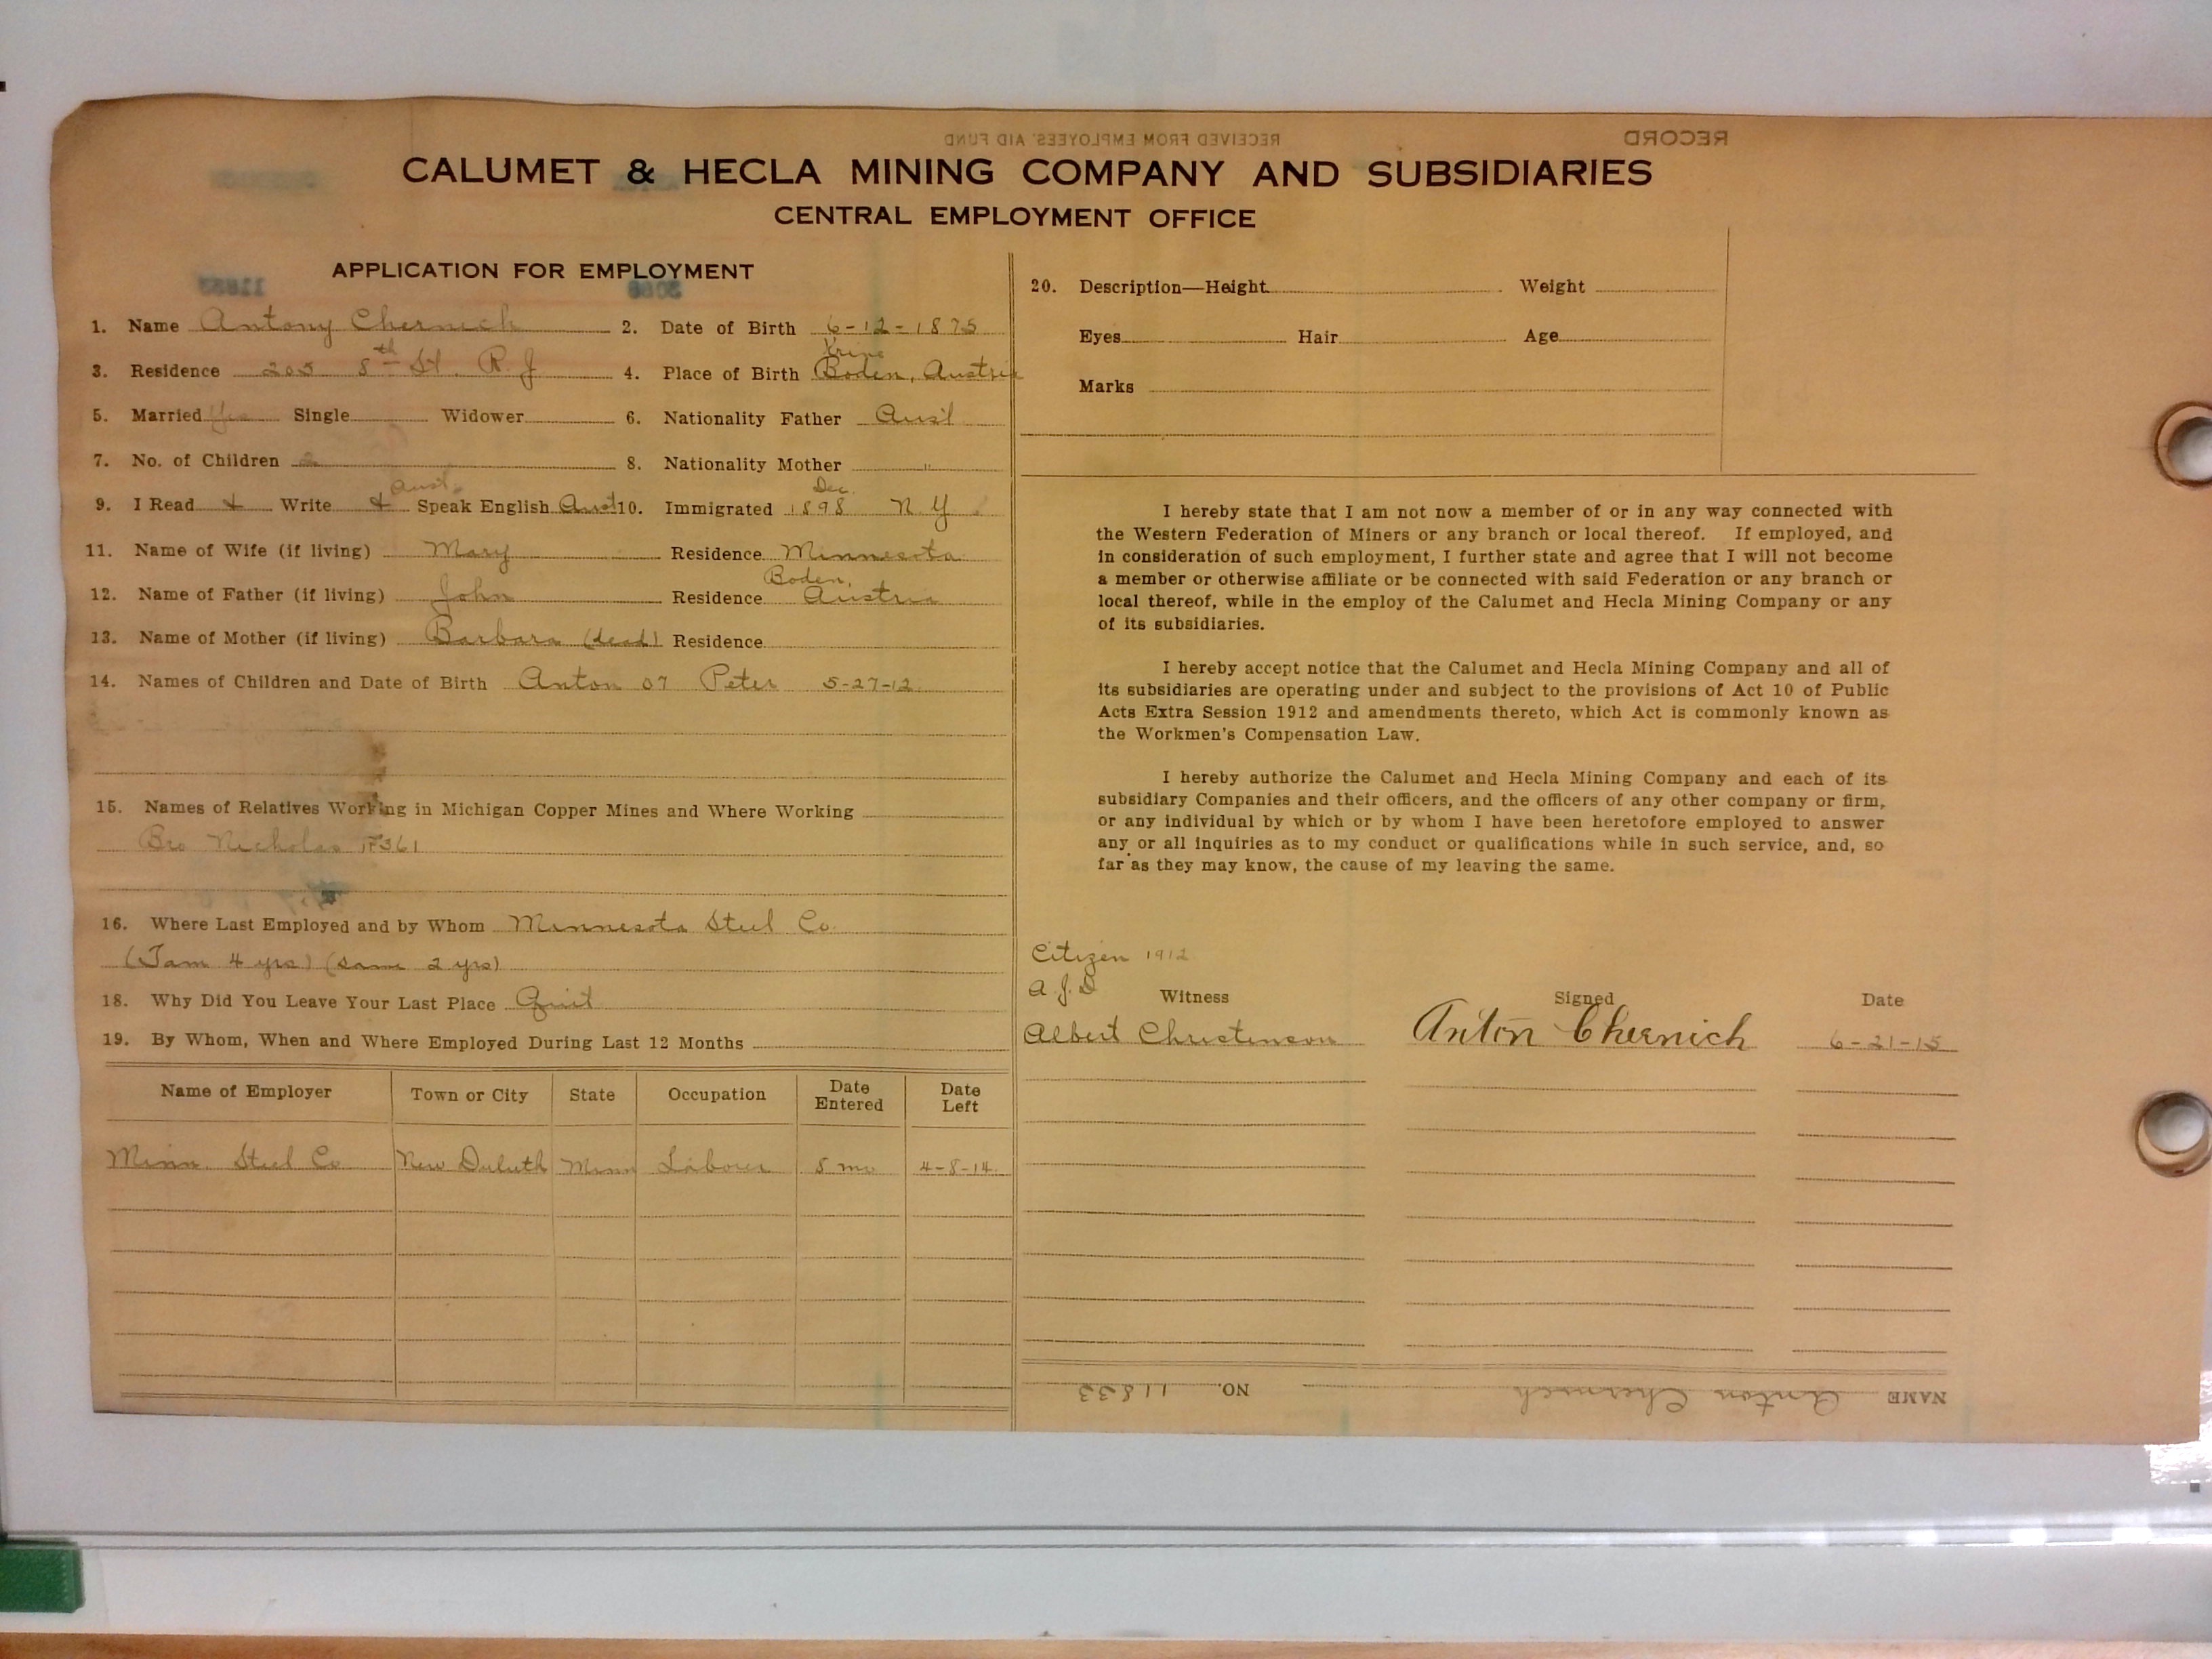 RECEIVED FROM EMPLOYEES' AID FUND
RECORD
CALUMET & HECLA MINING COMPANY AND SUBSIDIARIES
CENTRAL EMPLOYMENT OFFICE
APPLICATION FOR EMPLOYMENT
1. Name Antony Chernich 2. Date of Birth 6-12-1875
3. Residence 205 8th St. R. J 4. Place of Birth Boden, Austria
5. Married Yes Single Widower 6. Nationality Father Aus'l
7. No. of Children 2 8. Nationality Mother "
Aust. Dec.
9. I Read & Write & Speak English Aust 10. Immigrated 1898 N.Y.
11. Name of Wife (if living) Mary Residence Minnesota
12. Name of Father (if living) John Residence Boden, Austria
13. Name of Mother (if living) Barbara (dead) Residence
14. Names of Children and Date of Birth Anton 07 Peter 5-27-12
15. Names of Relatives Working in Michigan Copper Mines and Where Working
Bro Nicholas 17361
16. Where Last Employed and by Whom Minnesota Steel Co.
(Tam 4 yrs) (same 2 yrs)
18. Why Did You Leave Your Last Place Quit
19. By Whom, When and Where Employed During Last 12 Months
Name of Employer Town or City State Occupation Date Entered Date Left
Minn. Steel Co New Duluth Minn Laborer 8 mo 4-8-14
20. Description—Height Weight
Eyes Hair Age
Marks
I hereby state that I am not now a member of or in any way connected with
the Western Federation of Miners or any branch or local thereof. If employed, and
in consideration of such employment, I further state and agree that I will not become
a member or otherwise affiliate or be connected with said Federation or any branch or
local thereof, while in the employ of the Calumet and Hecla Mining Company or any
of its subsidiaries.
I hereby accept notice that the Calumet and Hecla Mining Company and all of
its subsidiaries are operating under and subject to the provisions of Act 10 of Public
Acts Extra Session 1912 and amendments thereto, which Act is commonly known as
the Workmen's Compensation Law.
I hereby authorize the Calumet and Hecla Mining Company and each of its
subsidiary Companies and their officers, and the officers of any other company or firm,
or any individual by which or by whom I have been heretofore employed to answer
any or all inquiries as to my conduct or qualifications while in such service, and, so
far as they may know, the cause of my leaving the same.
Citizen 1912
A.J.D
Witness Signed Date
Albert Christenson Anton Chernich 6-21-15
NAME Anton Chernich NO. 11833